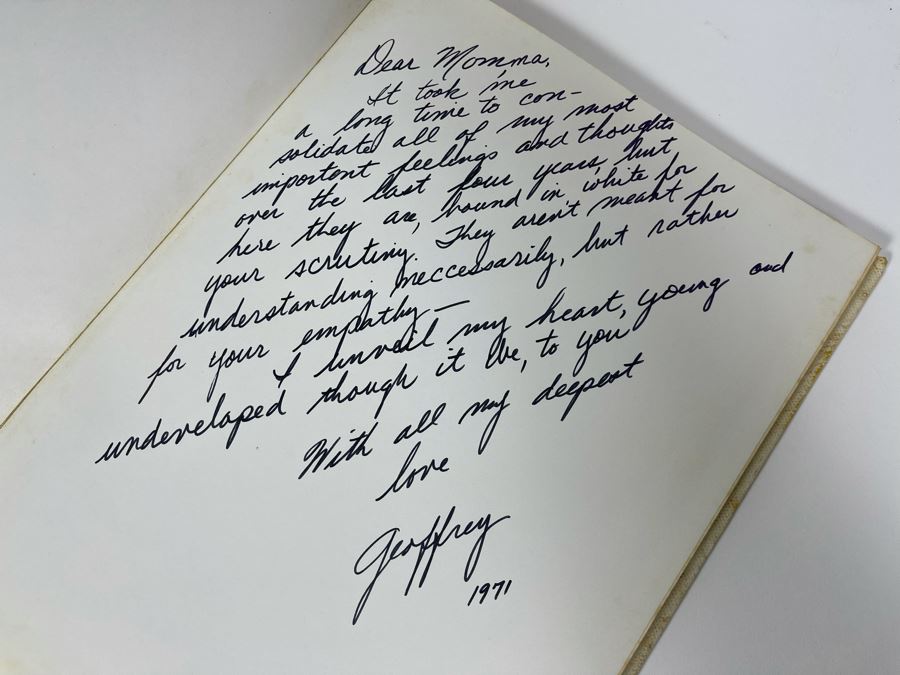 Dear Momma,
It took me
a long time to con-
solidate all of my most
importent feelings and thoughts
over the last four years, but
here they are, bound in white for
your scrutiny. They aren't meant for
understanding neccessarily, but rather
for your empathy—
I unveil my heart, young and
undeveloped though it be, to you
With all my deepest
love
Geoffrey
1971